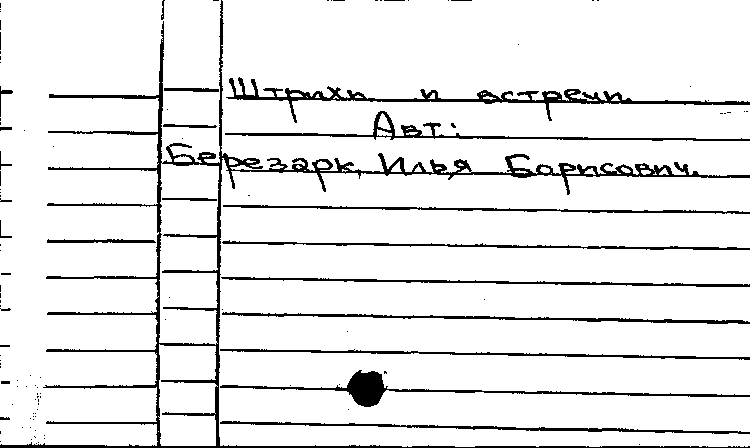 Штрихи и встречи.
Авт:
Березарк, Илья Борисович.